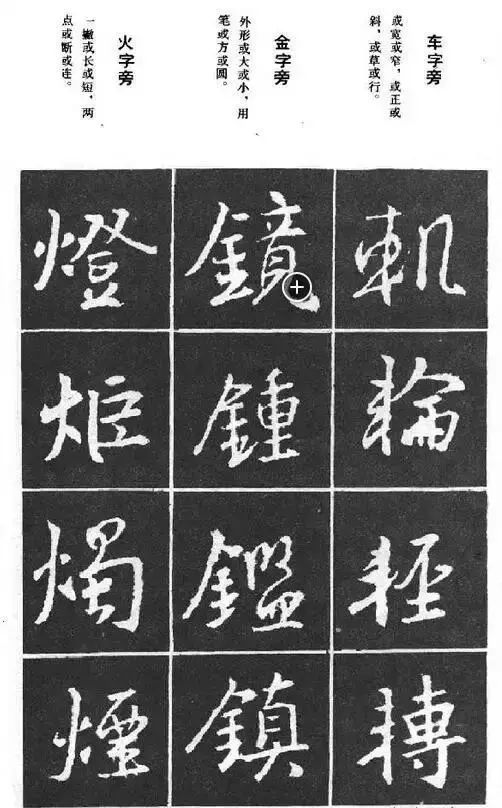 车字旁
或宽或窄，或正或
斜，或草或行。
金字旁
外形或大或小，用
笔或方或圆。
火字旁
一撇或长或短，两
点或断或连。
軌
輪
輕
轉
鏡
鍾
鑑
鎮
燈
炬
燭
煙